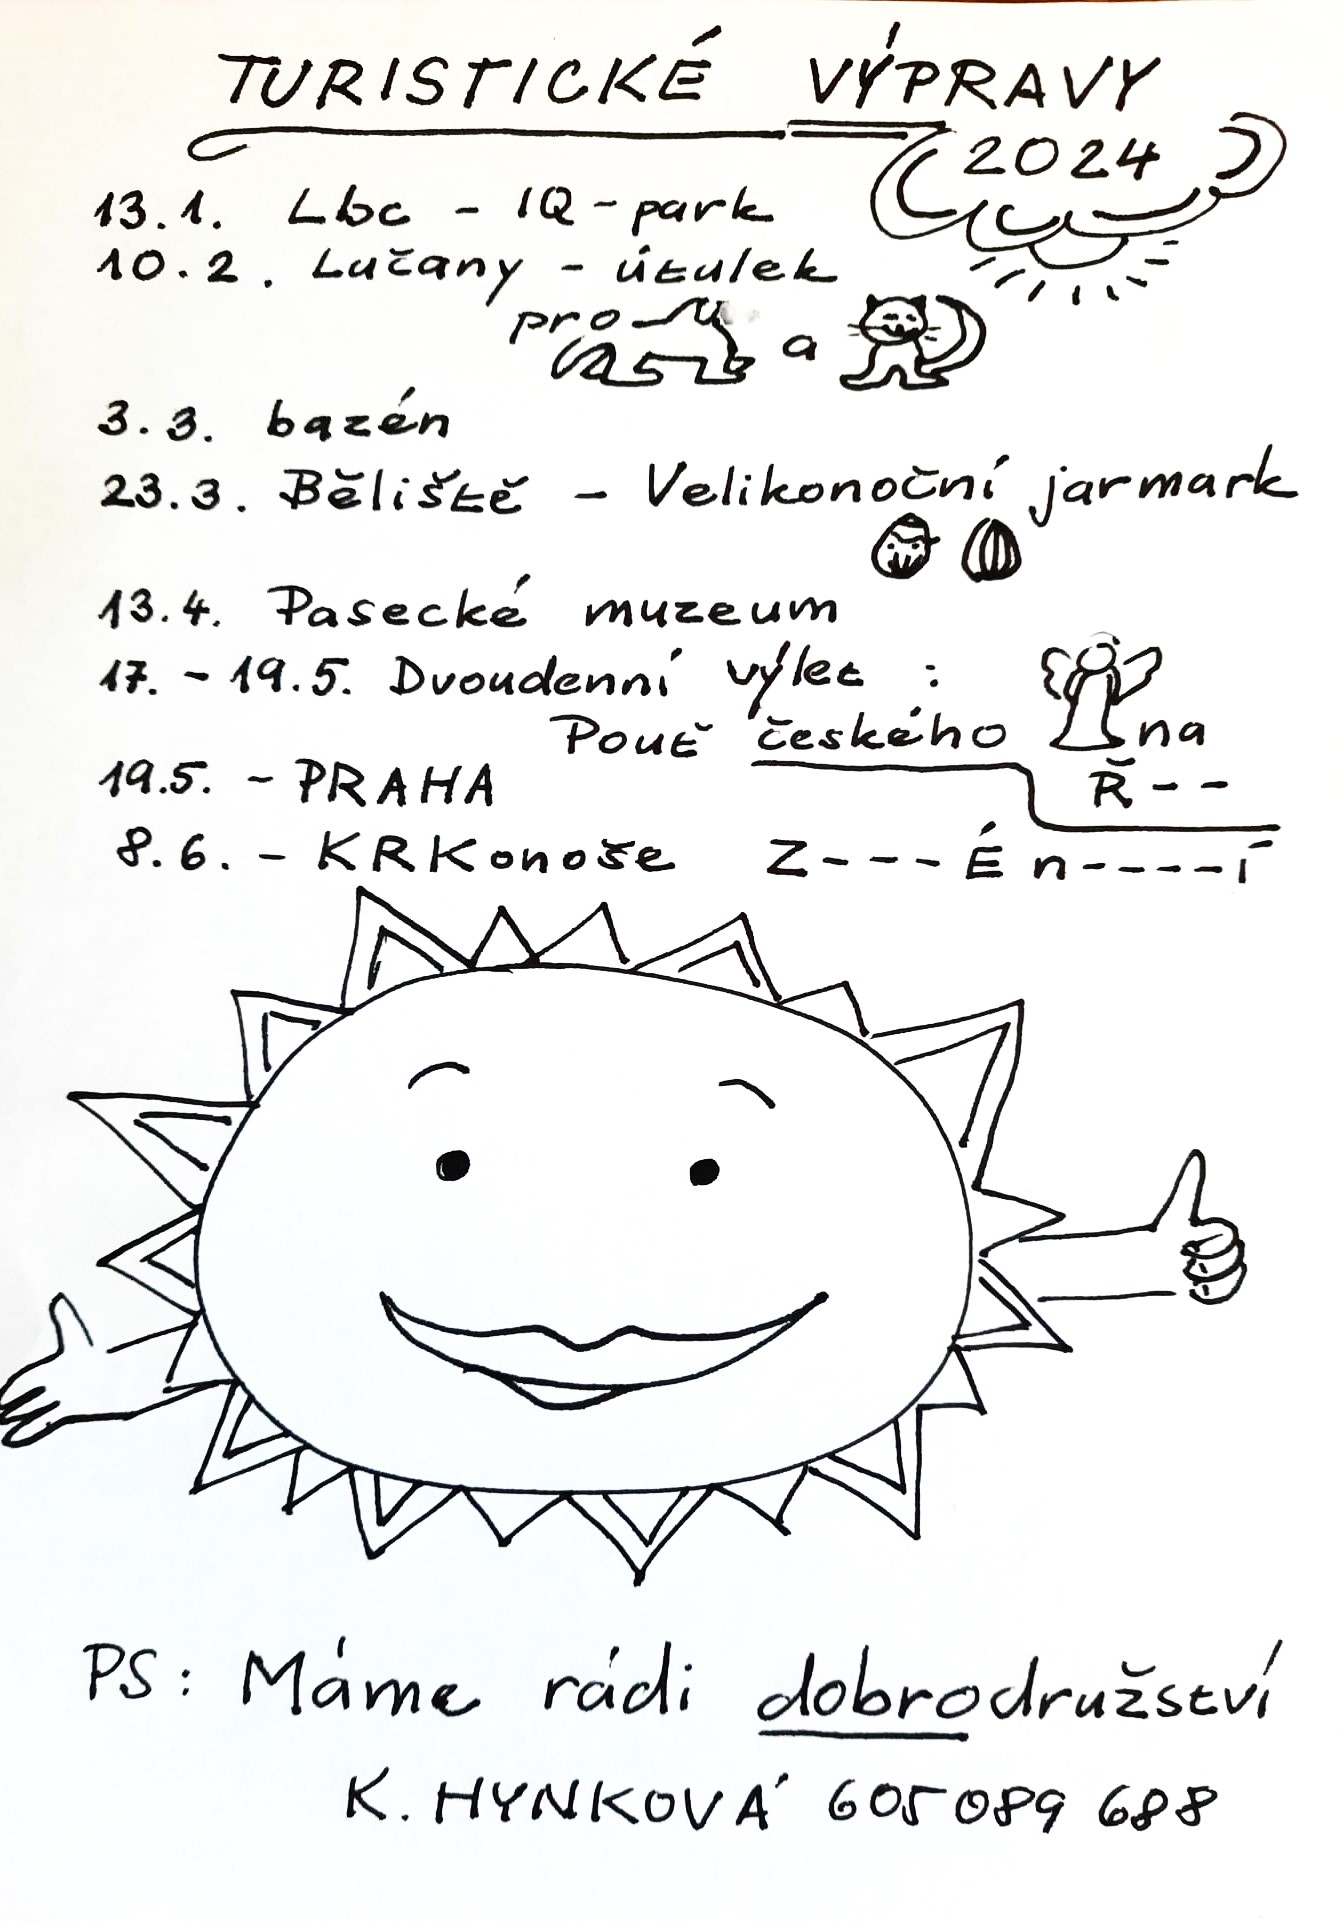 TURISTICKÉ VÝPRAVY
2024
13.1. Lbc - IQ-park
10.2. Lučany - útulek
pro a
3.3. bazén
23.3. Běliště - Velikonoční jarmark
13.4. Pasecké muzeum
17. - 19.5. Dvoudenní výlet :
Pouť českého na
19.5. - PRAHA Ř--
8.6. - KRKonoše Z---É n----í
PS: Máme rádi dobrodružství
K. HYNKOVÁ 605 089 688